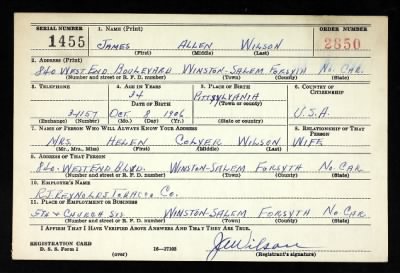 SERIAL NUMBER 1. NAME (Print) ORDER NUMBER
1455 JAMES ALLEN WILSON 2850
(First) (Middle) (Last)
2. ADDRESS (Print)
840 WEST END BOULEVARD WINSTON-SALEM FORSYTH NO. CAR.
(Number and street or R. F. D. number) (Town) (County) (State)
3. TELEPHONE 4. AGE IN YEARS 5. PLACE OF BIRTH 6. COUNTRY OF CITIZENSHIP
34 PITTSYLVANIA
DATE OF BIRTH (Town or county)
24157 OCT 8 1906 U.S.A.
(Exchange) (Number) (Mo.) (Day) (Yr.) (State or country)
7. NAME OF PERSON WHO WILL ALWAYS KNOW YOUR ADDRESS 8. RELATIONSHIP OF THAT PERSON
MRS. HELEN COLVER WILSON WIFE
(Mr., Mrs., Miss) (First) (Middle) (Last)
9. ADDRESS OF THAT PERSON
840-WEST END BLVD. WINSTON-SALEM FORSYTH NO. CAR.
(Number and street or R. F. D. number) (Town) (County) (State)
10. EMPLOYER'S NAME
R.J. REYNOLDS TOBACCO CO.
11. PLACE OF EMPLOYMENT OR BUSINESS
5TH & CHURCH STS WINSTON-SALEM FORSYTH NO. CAR.
(Number and street or R. F. D. number) (Town) (County) (State)
I AFFIRM THAT I HAVE VERIFIED ABOVE ANSWERS AND THAT THEY ARE TRUE.
REGISTRATION CARD JAWilson
D. S. S. Form 1 16-17105 (Registrant's signature)
(over)